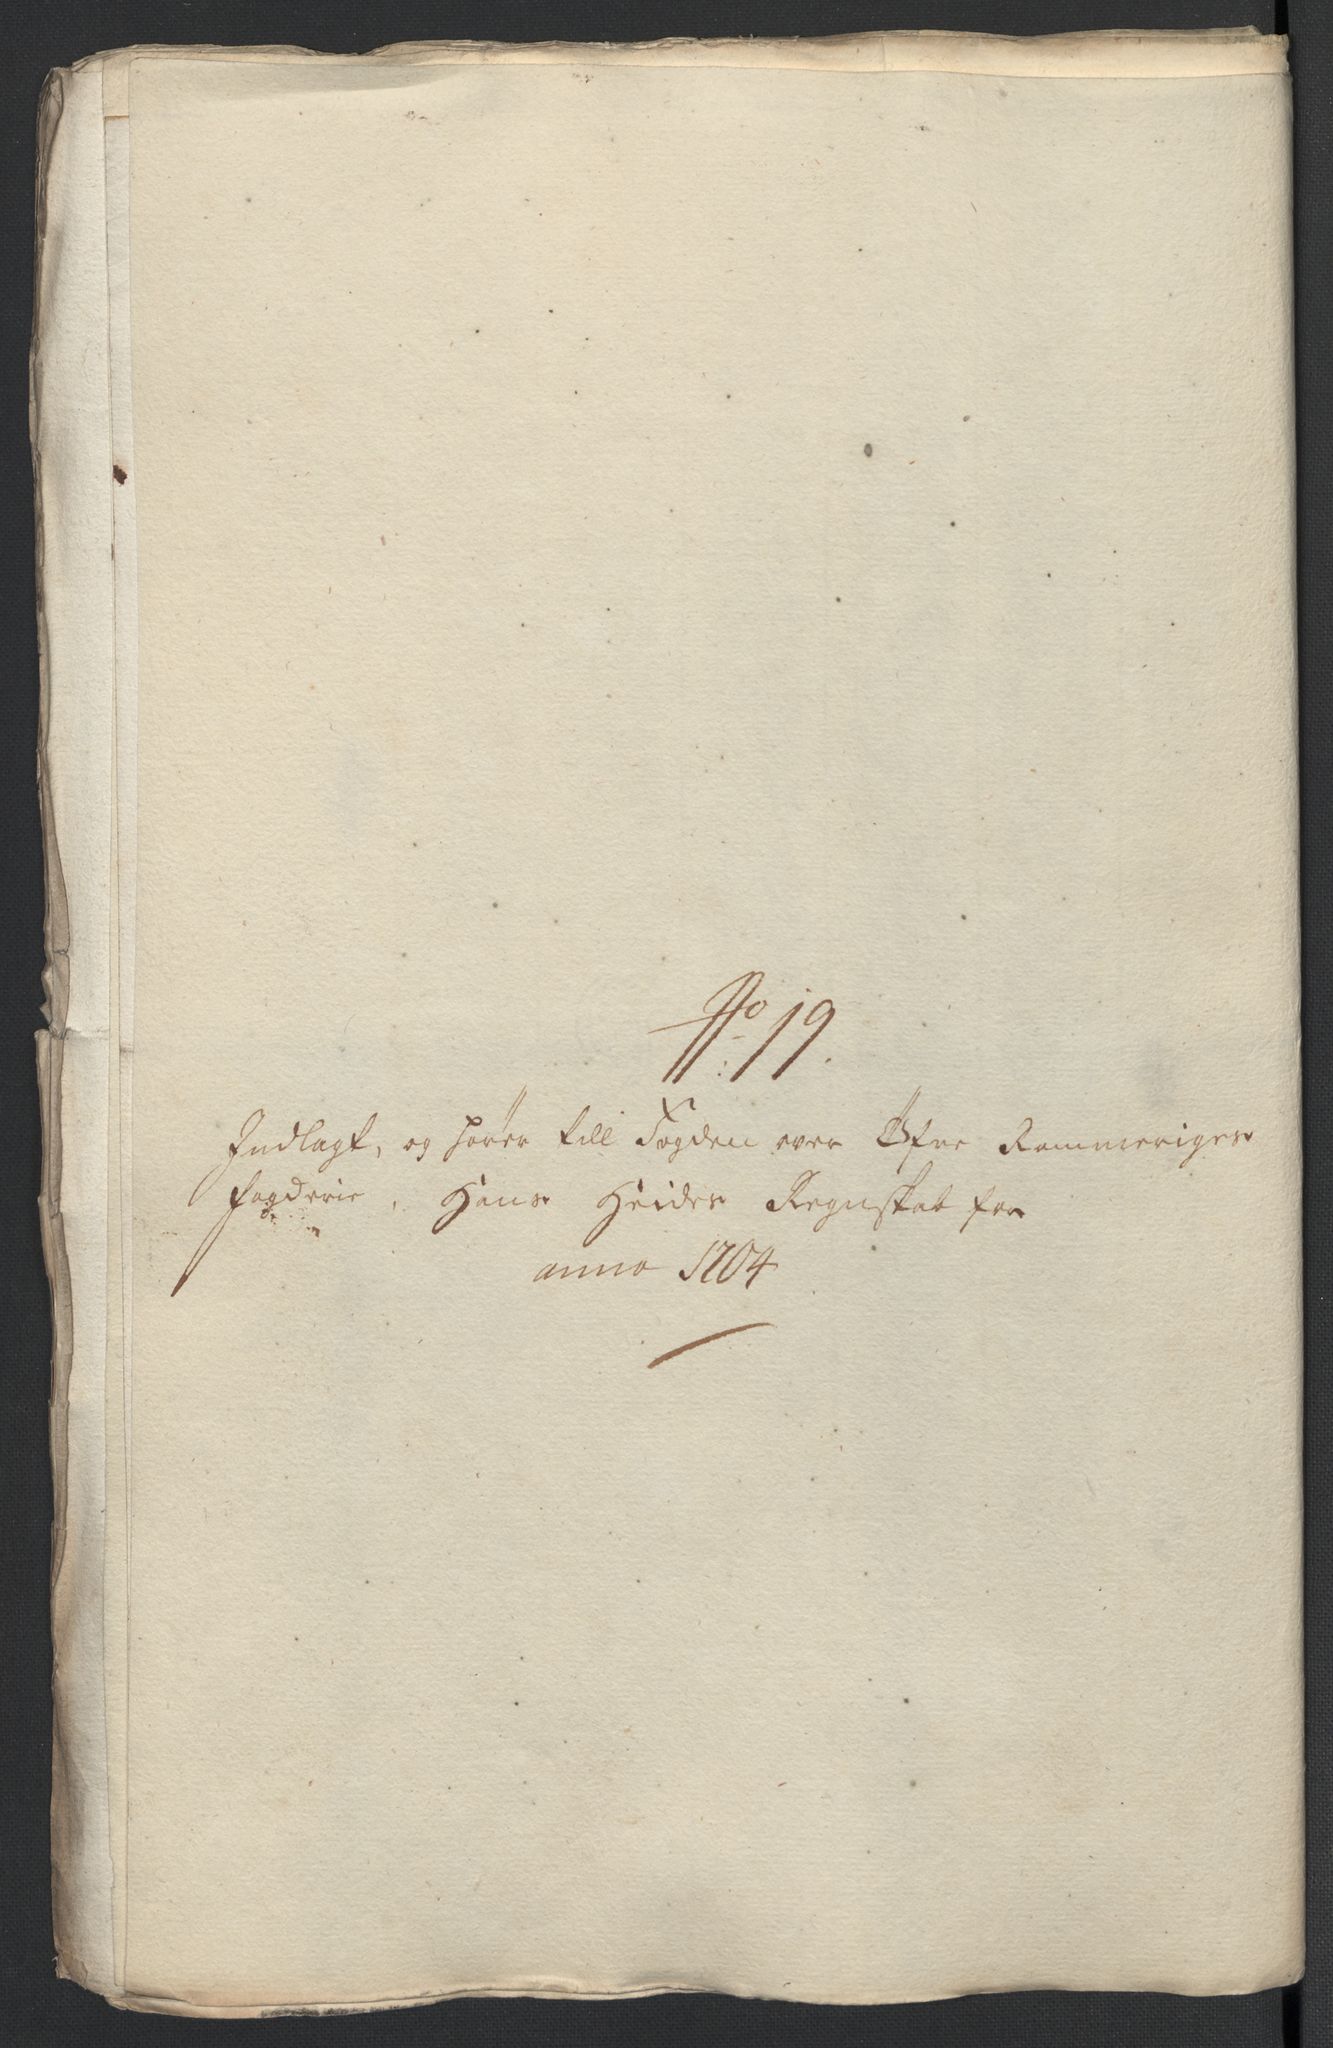 No: 19.
Indlagt, og hører till Fogden over Øfre Rommeriges
fogderie, Hans Heides Regnskab for
anno 1704